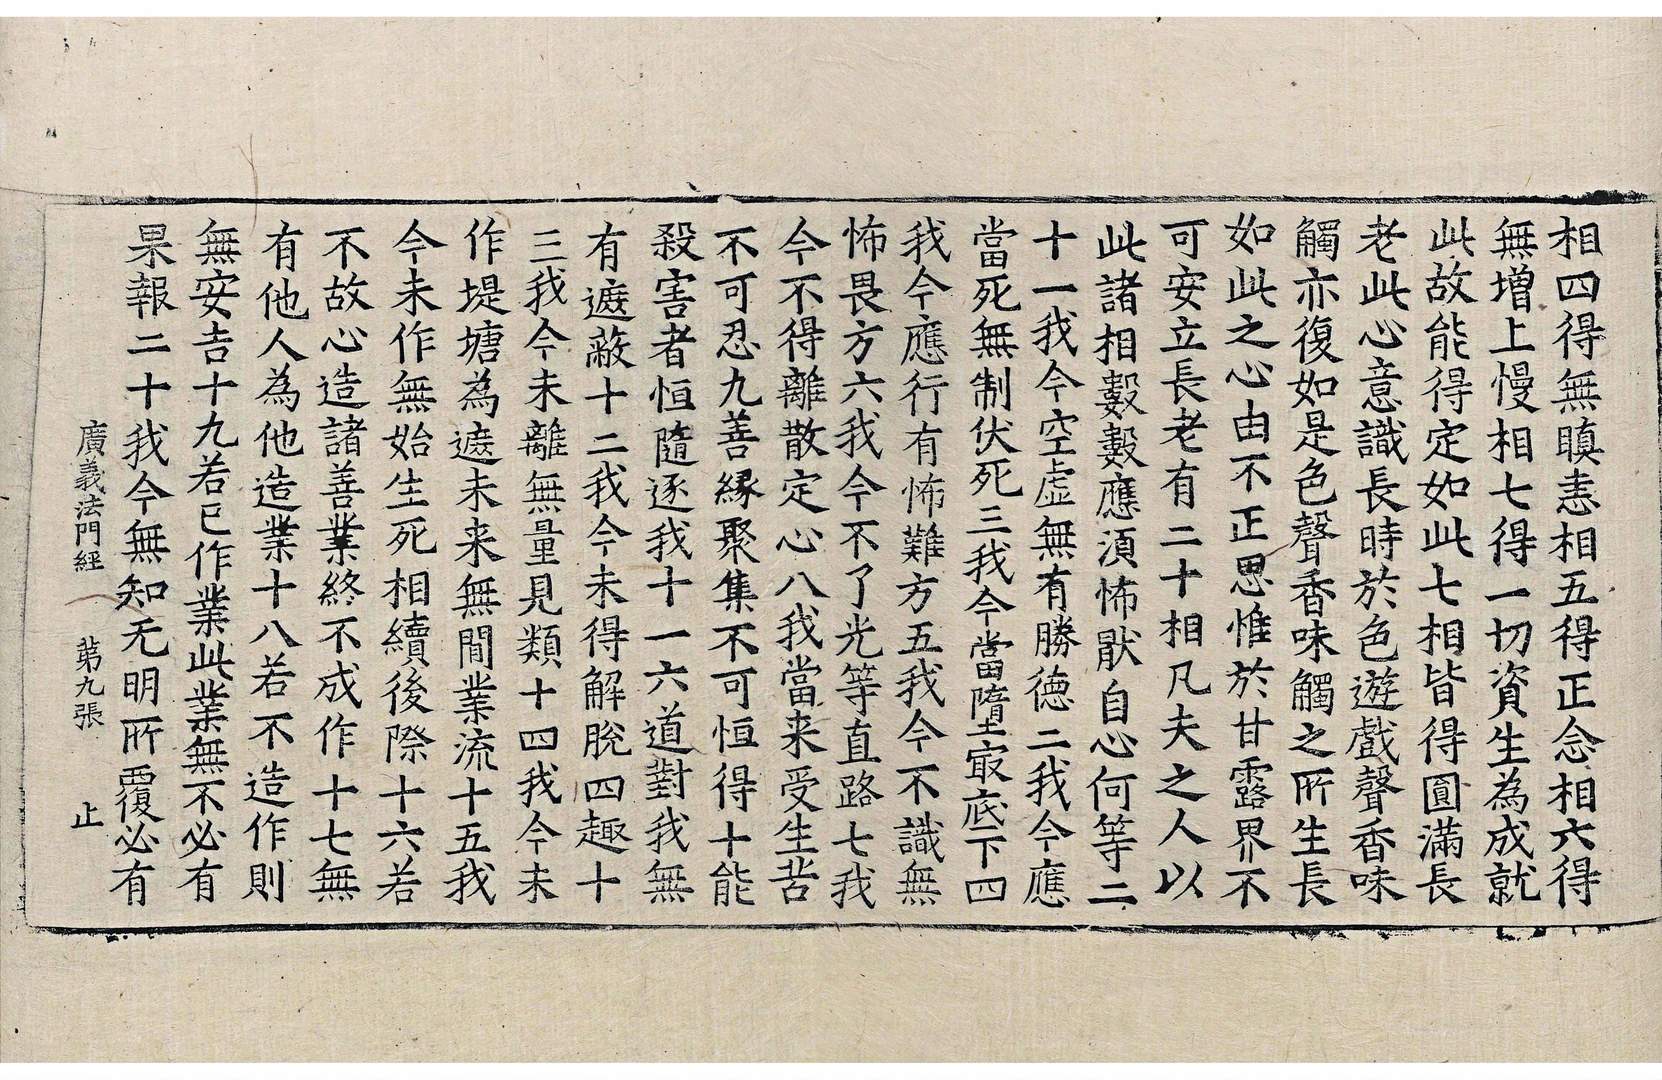 相四得無瞋恚相五得正念相六得
無增上慢相七得一切資生為成就
此故能得定如此七相皆得圓滿長
老此心意識長時於色遊戲聲香味
觸亦復如是色聲香味觸之所生長
如此之心由不正思惟於甘露界不
可安立長老有二十相凡夫之人以
此諸相數數應須怖猒自心何等二
十一我今空虛無有勝德二我今應
當死無制伏死三我今當墮㝡底下四
我今應行有怖難方五我今不識無
怖畏方六我今不了光等直路七我
今不得離散定心八我當来受生苦
不可忍九善緣聚集不可恒得十能
殺害者恒隨逐我十一六道對我無
有遮蔽十二我今未得解脫四趣十
三我今未離無量見類十四我今未
作堤塘為遮未来無間業流十五我
今未作無始生死相續後際十六若
不故心造諸善業終不成作十七無
有他人為他造業十八若不造作則
無安吉十九若已作業此業無不必有
果報二十我今無知无明所覆必有
廣義法門經 苐九張 止